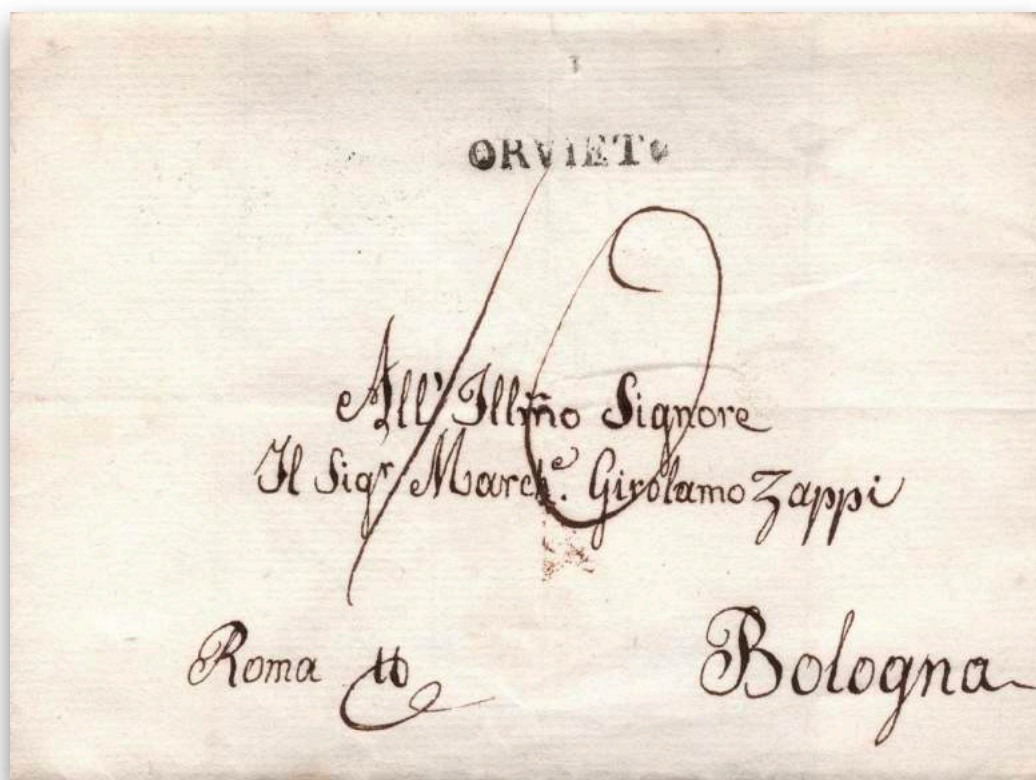 ORVIETO
10
All' Illm̃o Signore
Il Sigr. Marche. Girolamo Zappi
Roma
Bologna